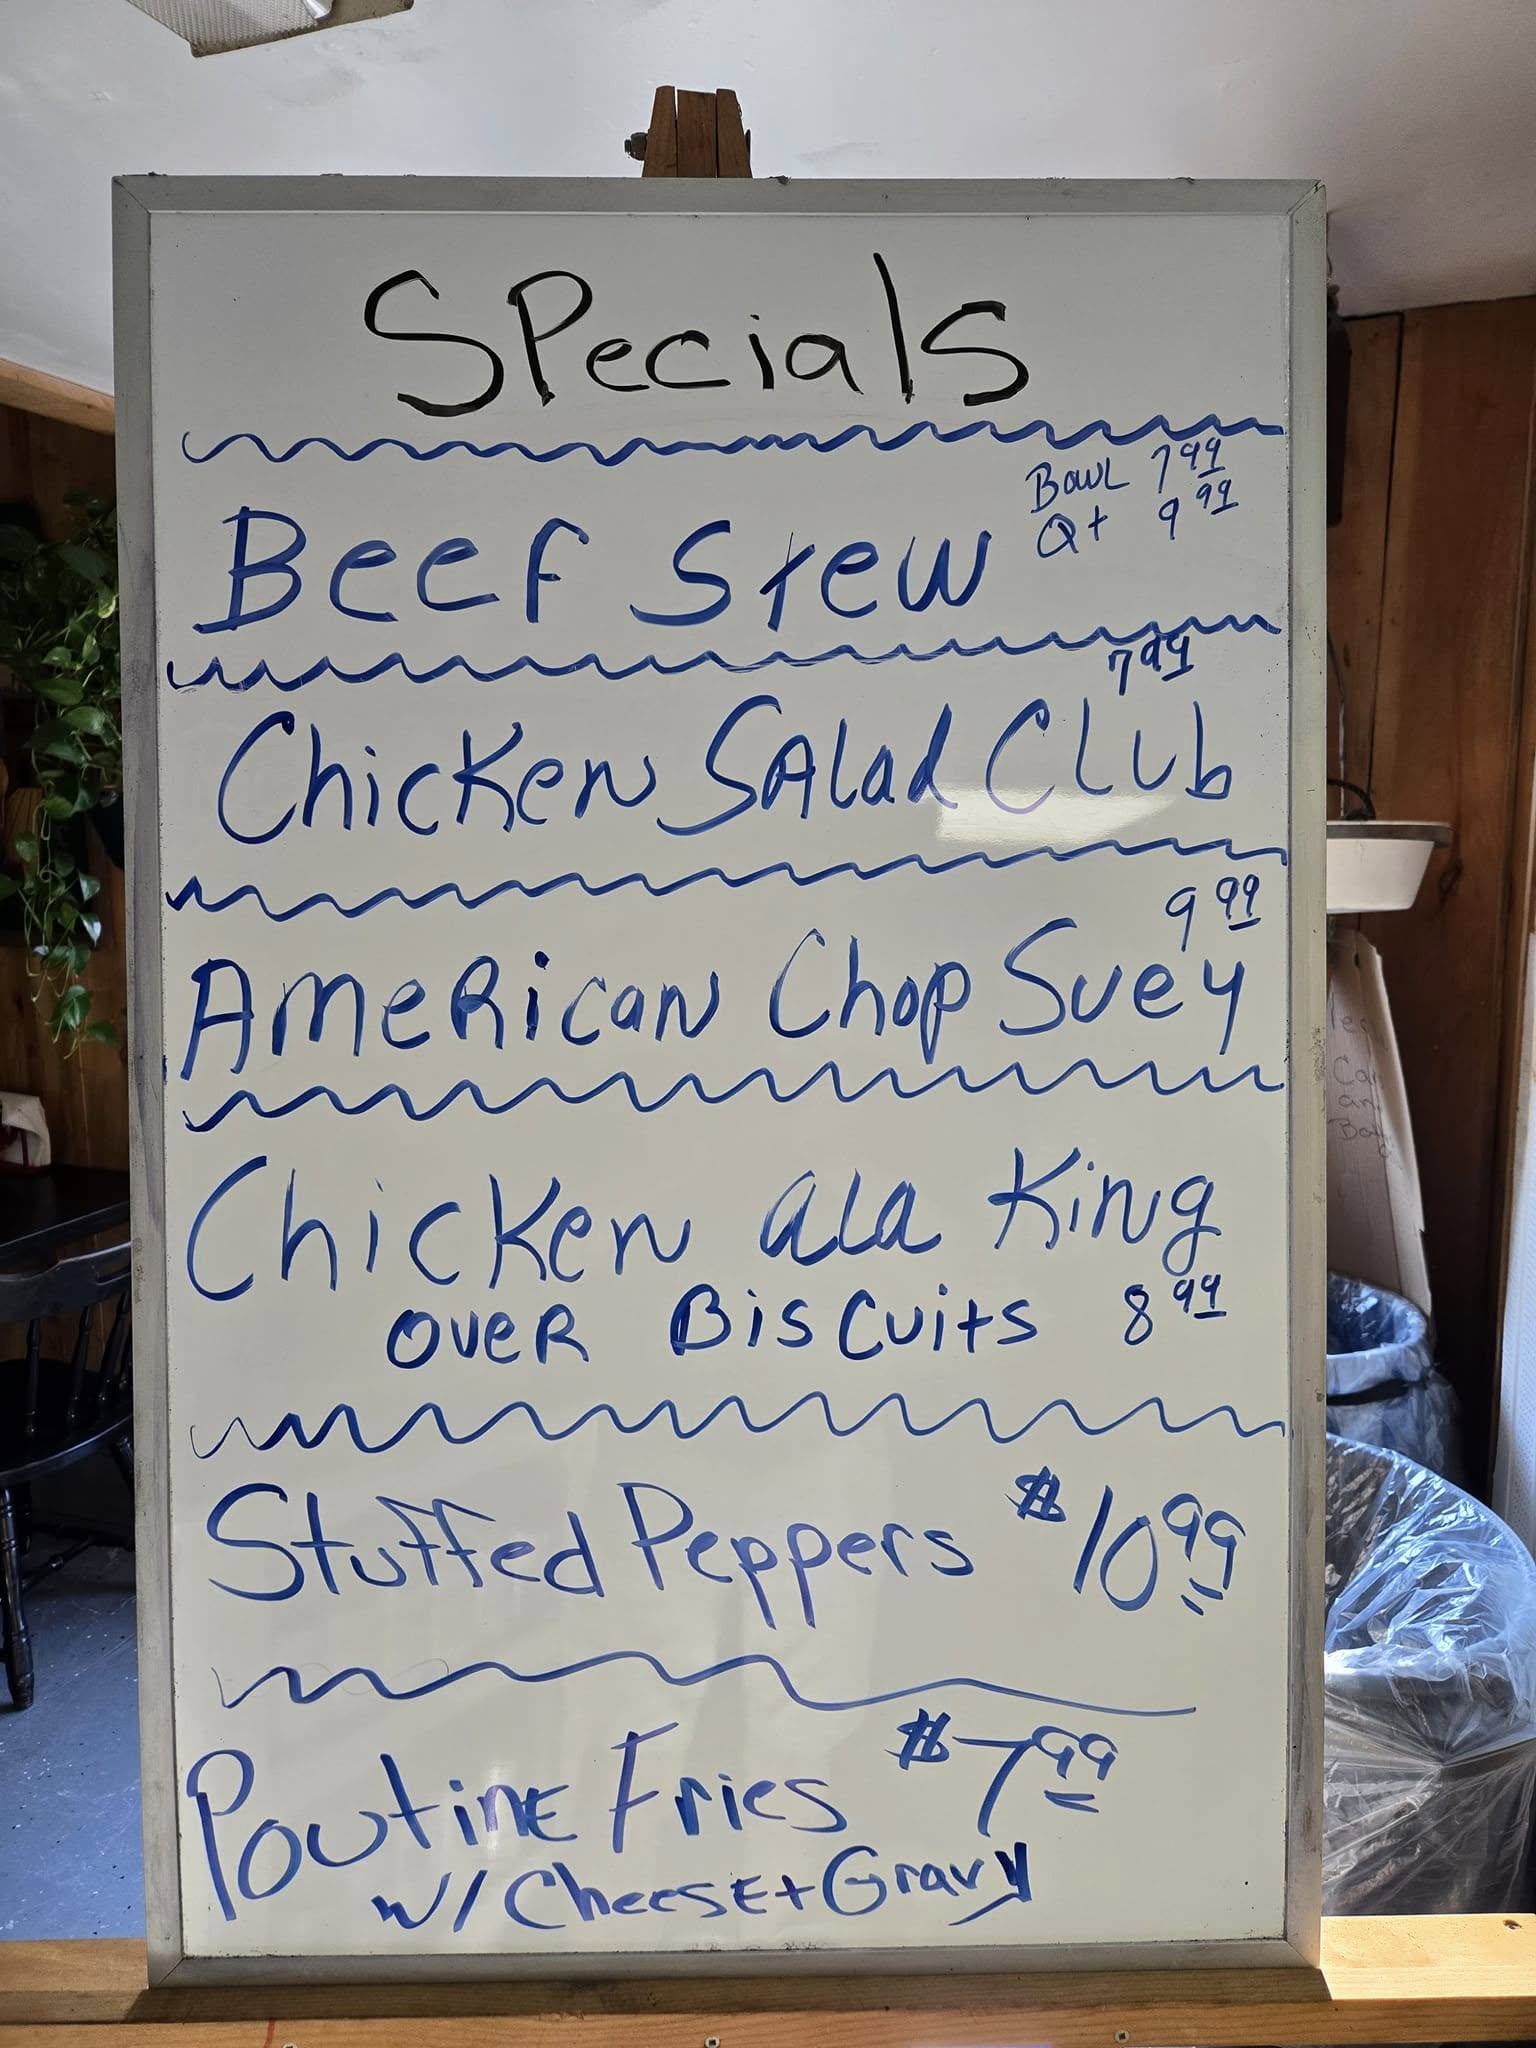 SPecials
Bowl 7.99
Qt 9.99
Beef Stew
7.99
Chicken SAlad Club
9.99
AmeRican Chop Suey
Chicken ala King
oveR BiscUits 8.99
Stuffed Peppers $10.99
Poutine Fries $7.99
w/ Cheese + Gravy